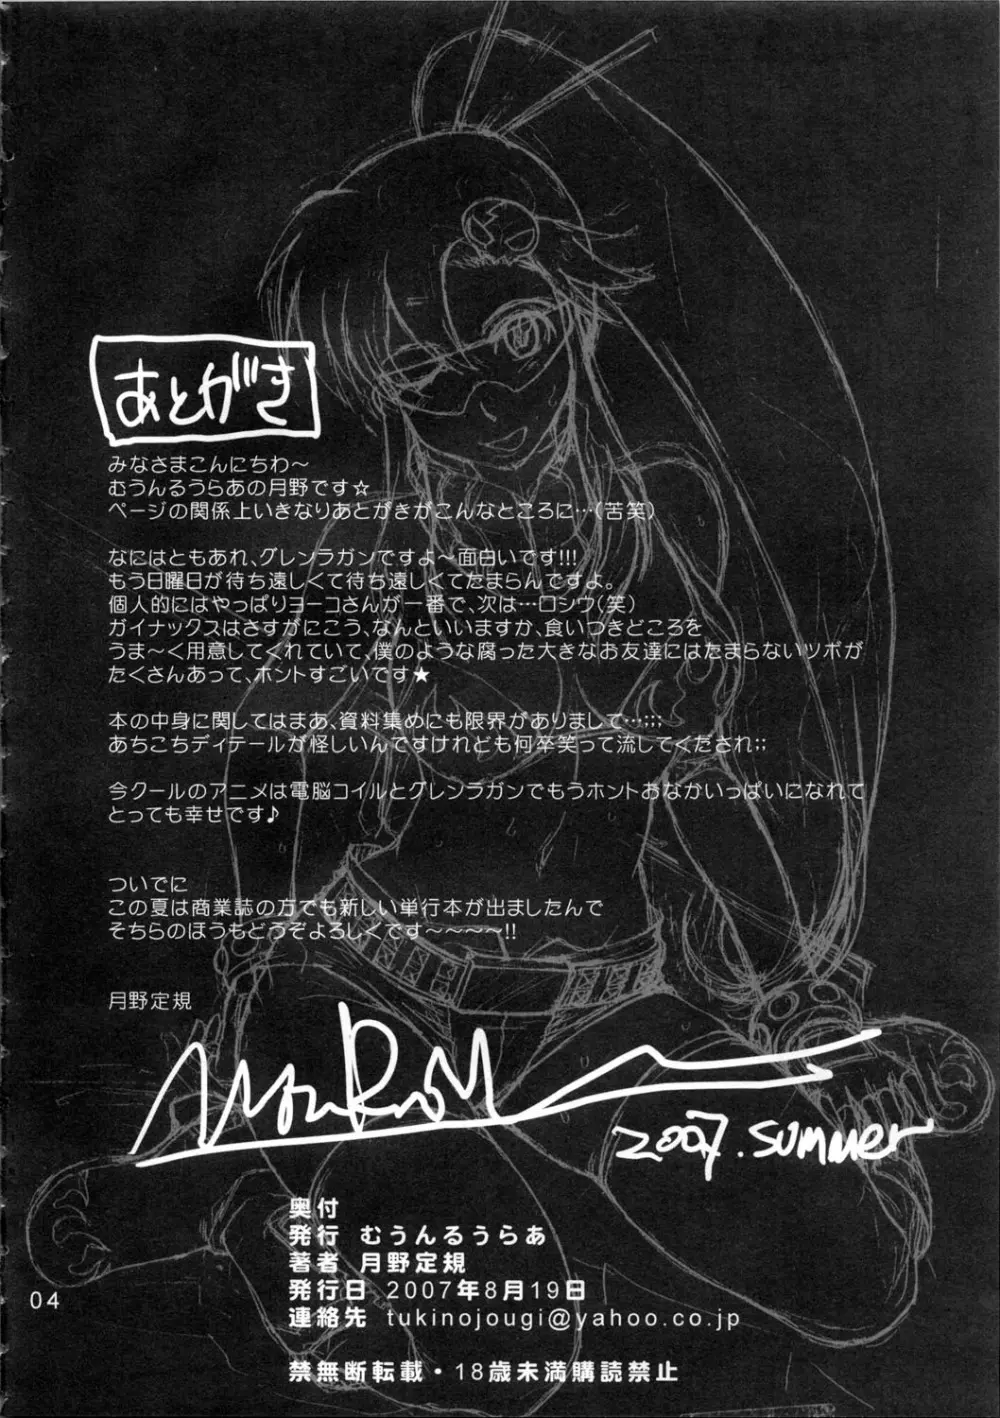 あとがき
みなさまこんにちわ～
むうんるうらあの月野です☆
ページの関係上いきなりあとがきがこんなところに…(苦笑)
なにはともあれ、グレンラガンですよ～面白いです!!!
もう日曜日が待ち遠しくて待ち遠しくてたまらんですよ。
個人的にはやっぱりヨーコさんが一番で、次は…ロシウ(笑)
ガイナックスはさすがにこう、なんといいますか、食いつきどころを
うま～く用意してくれていて、僕のような腐った大きなお友達にはたまらないツボが
たくさんあって、ホントすごいです★
本の中身に関してはまあ、資料集めにも限界がありまして…;;;
あちこちディテールが怪しいんですけれども何卒笑って流してくだされ;;
今クールのアニメは電脳コイルとグレンラガンでもうホントおなかいっぱいになれて
とっても幸せです♪
ついでに
この夏は商業誌の方でも新しい単行本が出ましたんで
そちらのほうもどうぞよろしくです～～～～!!
月野定規
2007. summer
奥付
発行 むうんるうらあ
著者 月野定規
発行日 2007年8月19日
連絡先 tukinojougi@yahoo.co.jp
禁無断転載・18歳未満購読禁止
04